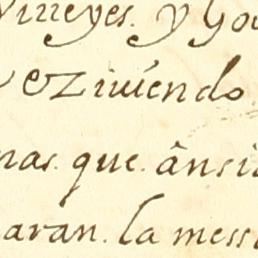 Virreyes. y Go
reziuiendo
nas. que. ânsi
aran. la mess